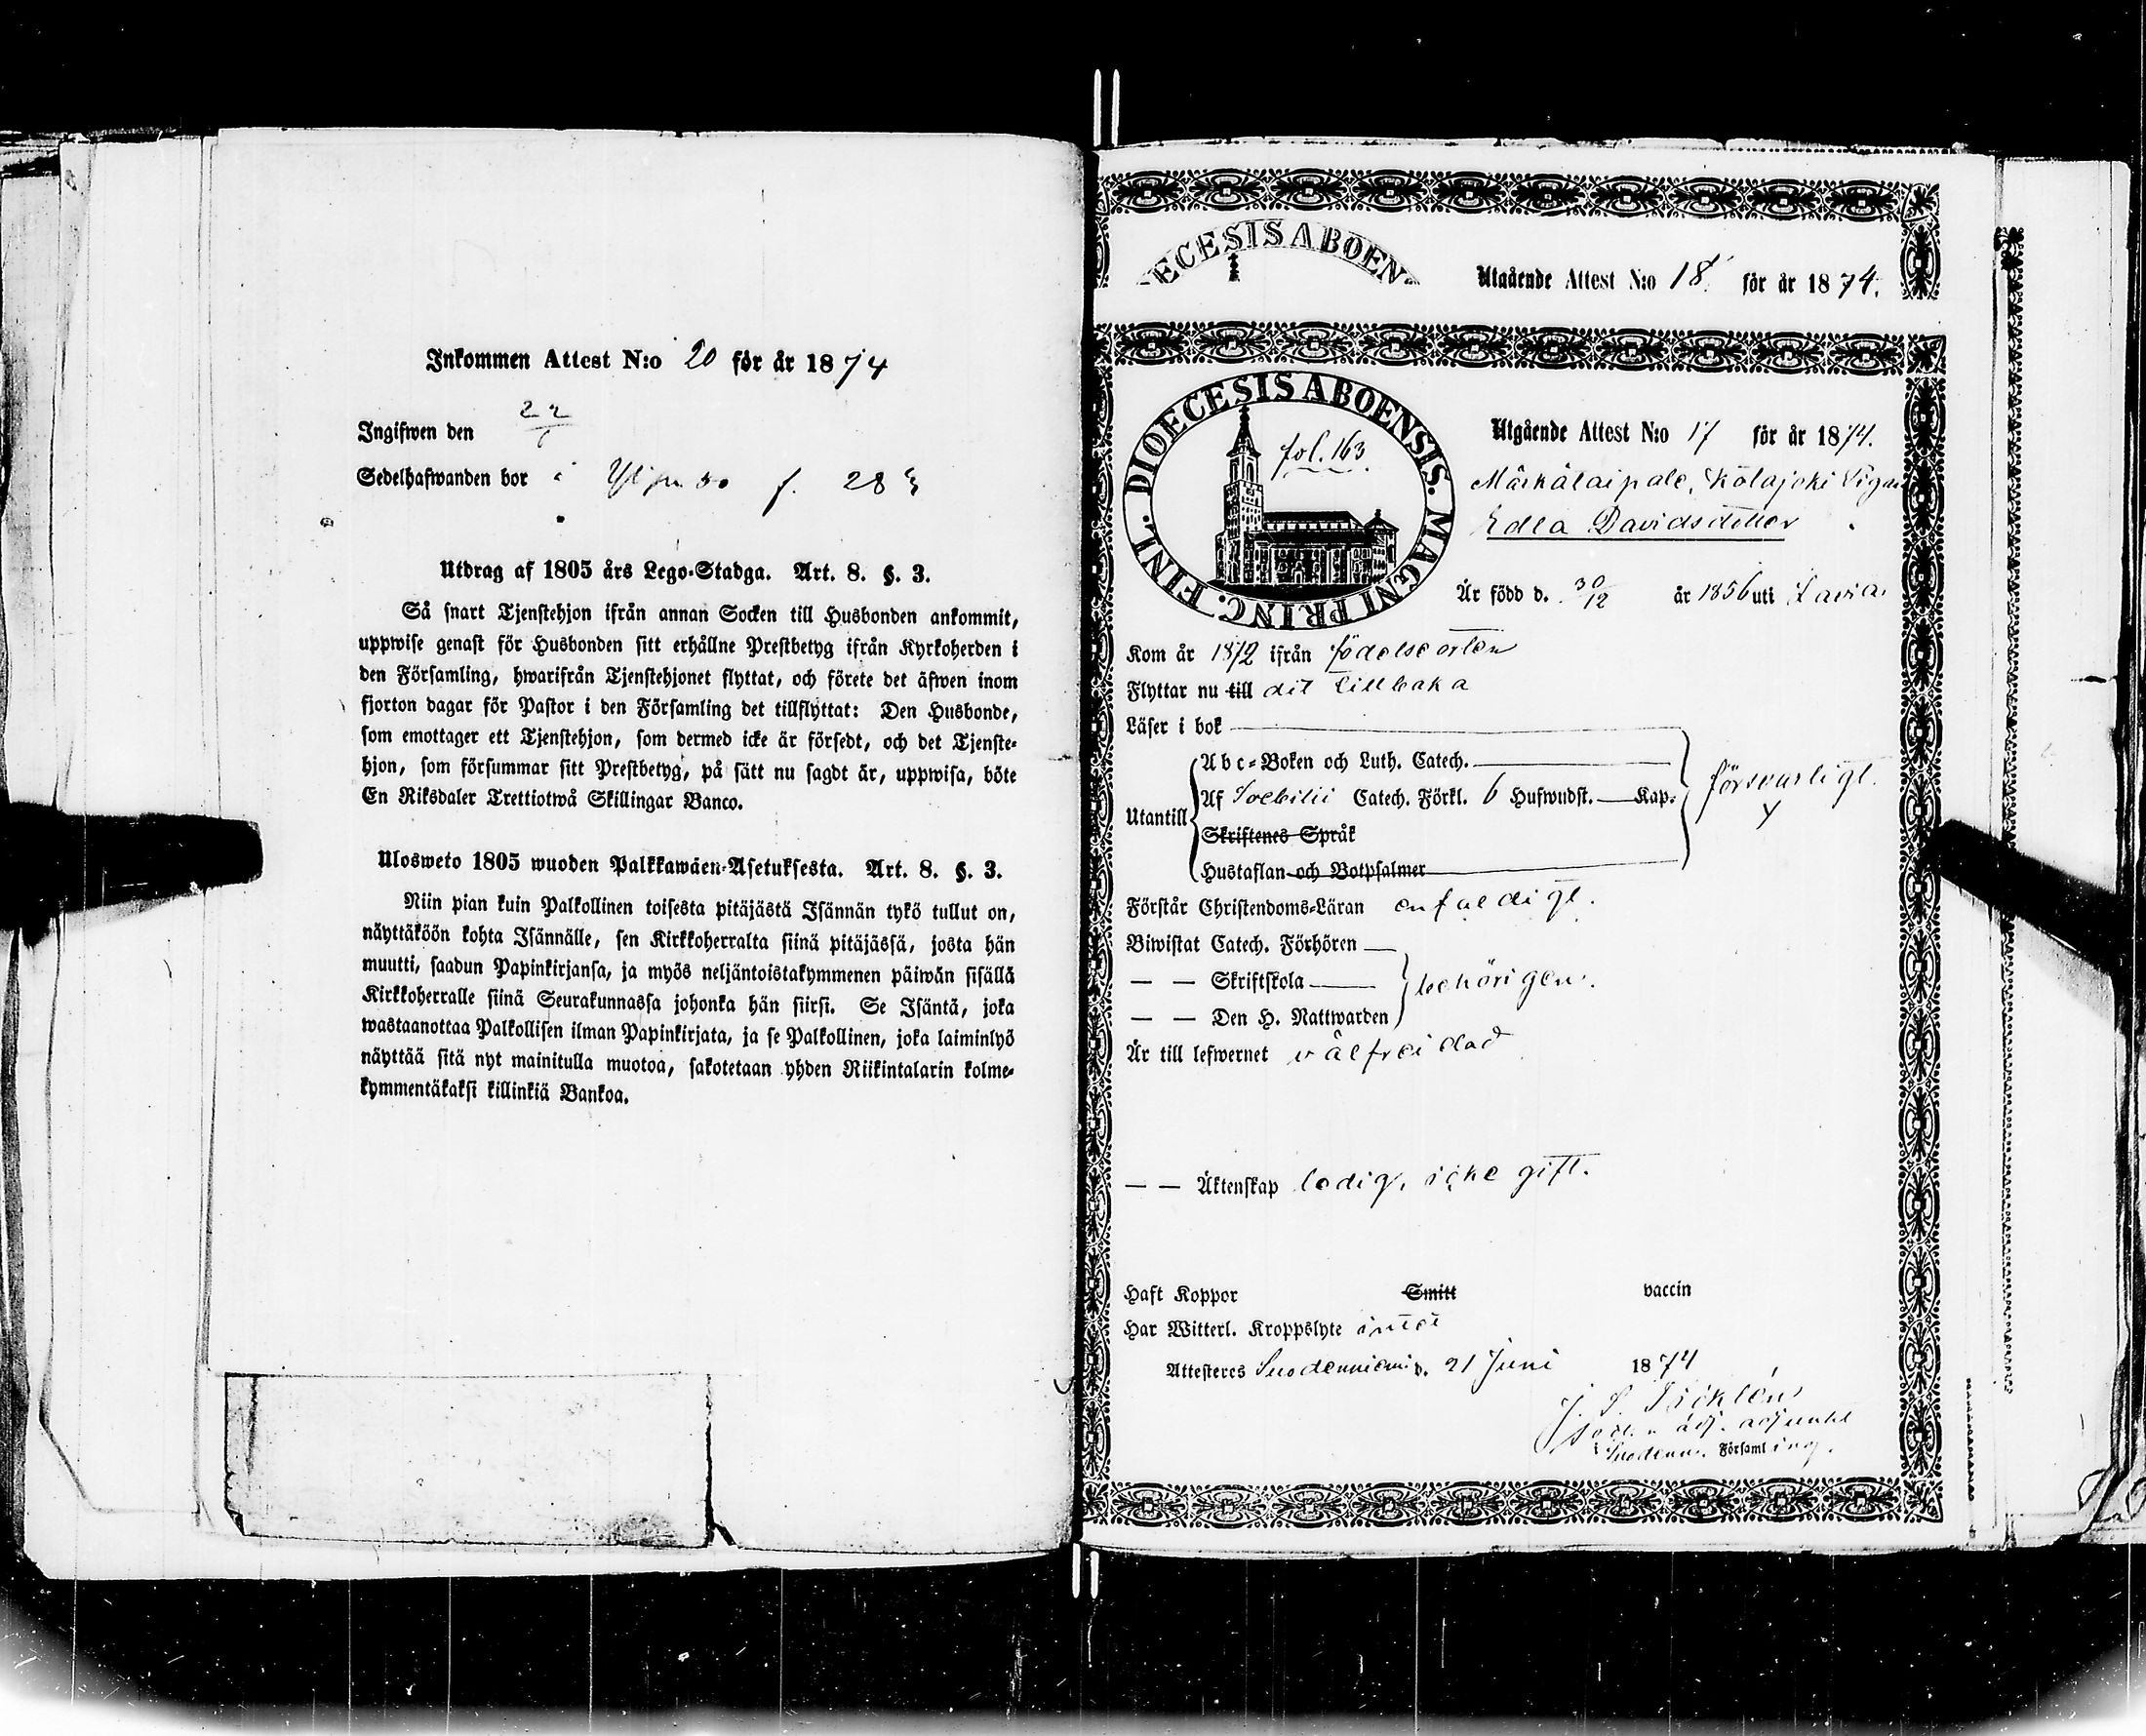 Inkommen Attest N:o 20 för år 1874
Ingifwen den 22/6
Sedelhafwanden bor i f. 283
Utdrag af 1805 års Lego-Stadga. Art. 8. §. 3.
Så snart Tjenstehjon ifrån annan Socken till Husbonden ankommit,
uppwise genast för Husbonden sitt erhållne Prestbetyg ifrån Kyrkoherden i
den Församling, hwarifrån Tjenstehjonet flyttat, och förete det äfwen inom
fjorton dagar för Pastor i den Församling det tillflyttat: Den Husbonde,
som emottager ett Tjenstehjon, som dermed icke är försedt, och det Tjenste-
hjon, som försummar sitt Prestbetyg, på sätt nu sagdt är, uppwisa, böte
En Riksdaler Trettiotwå Skillingar Banco.
Ulosweto 1805 wuoden Palkkawäen-Asetuksesta. Art. 8. §. 3.
Niin pian kuin Palkollinen toisesta pitäjästä Isännän tykö tullut on,
näyttäköön kohta Isännälle, sen Kirkkoherralta siinä pitäjässä, josta hän
muutti, saadun Papinkirjansa, ja myös neljäntoistakymmenen päiwän sisällä
Kirkkoherralle siinä Seurakunnassa johonka hän siirsi. Se Isäntä, joka
wastaanottaa Palkollisen ilman Papinkirjata, ja se Palkollinen, joka laiminlyö
näyttää sitä nyt mainitulla muotoa, sakotetaan yhden Riikintalarin kolme-
kymmentäkaksi killinkiä Bankoa.
ECESIS ABOEN
Utgående Attest N:o 18 för år 1874.
DIOECESIS ABOENSIS. MAGNI PRINC. FINL.
fol. 163.
Utgående Attest N:o 17 för år 1874.
Märkätaipale, Kolajoki Pigan
Edla Davidsdotter
Är född d. 30/12 år 1856 uti Lavia.
Kom år 1872 ifrån födelseorten
Flyttar nu till dit tillbaka
Läser i bok
Utantill
Abc-Boken och Luth. Catech.
Af Svebilii Catech. Förkl. 6 Hufwudst. Kap.
försvarligt.
Skriftenes Språk
Hustaflan och Botpsalmer
Förstår Christendoms-Läran enfaldigt.
Biwistat Catech. Förhören
— — Skriftskola behörigen.
— — Den H. Nattwarden
Är till lefwernet välfrejdad
— — Äktenskap ledig, icke gift.
Haft Koppor Smitt vaccin
Har Witterl. Kroppslyte intet
Attesteres Suodenniemi d. 21 Juni 1874
J. S.
adj. adjunkt
i Suodenn. Församling.